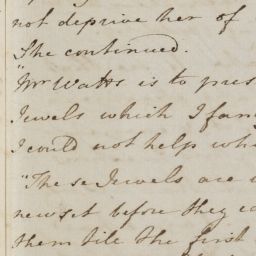 not deprive her of
She continued.
"Mr Watts is to pres
Jewels which I fan
I could not help whi
"These Jewels are
new set before they ca
them till the first